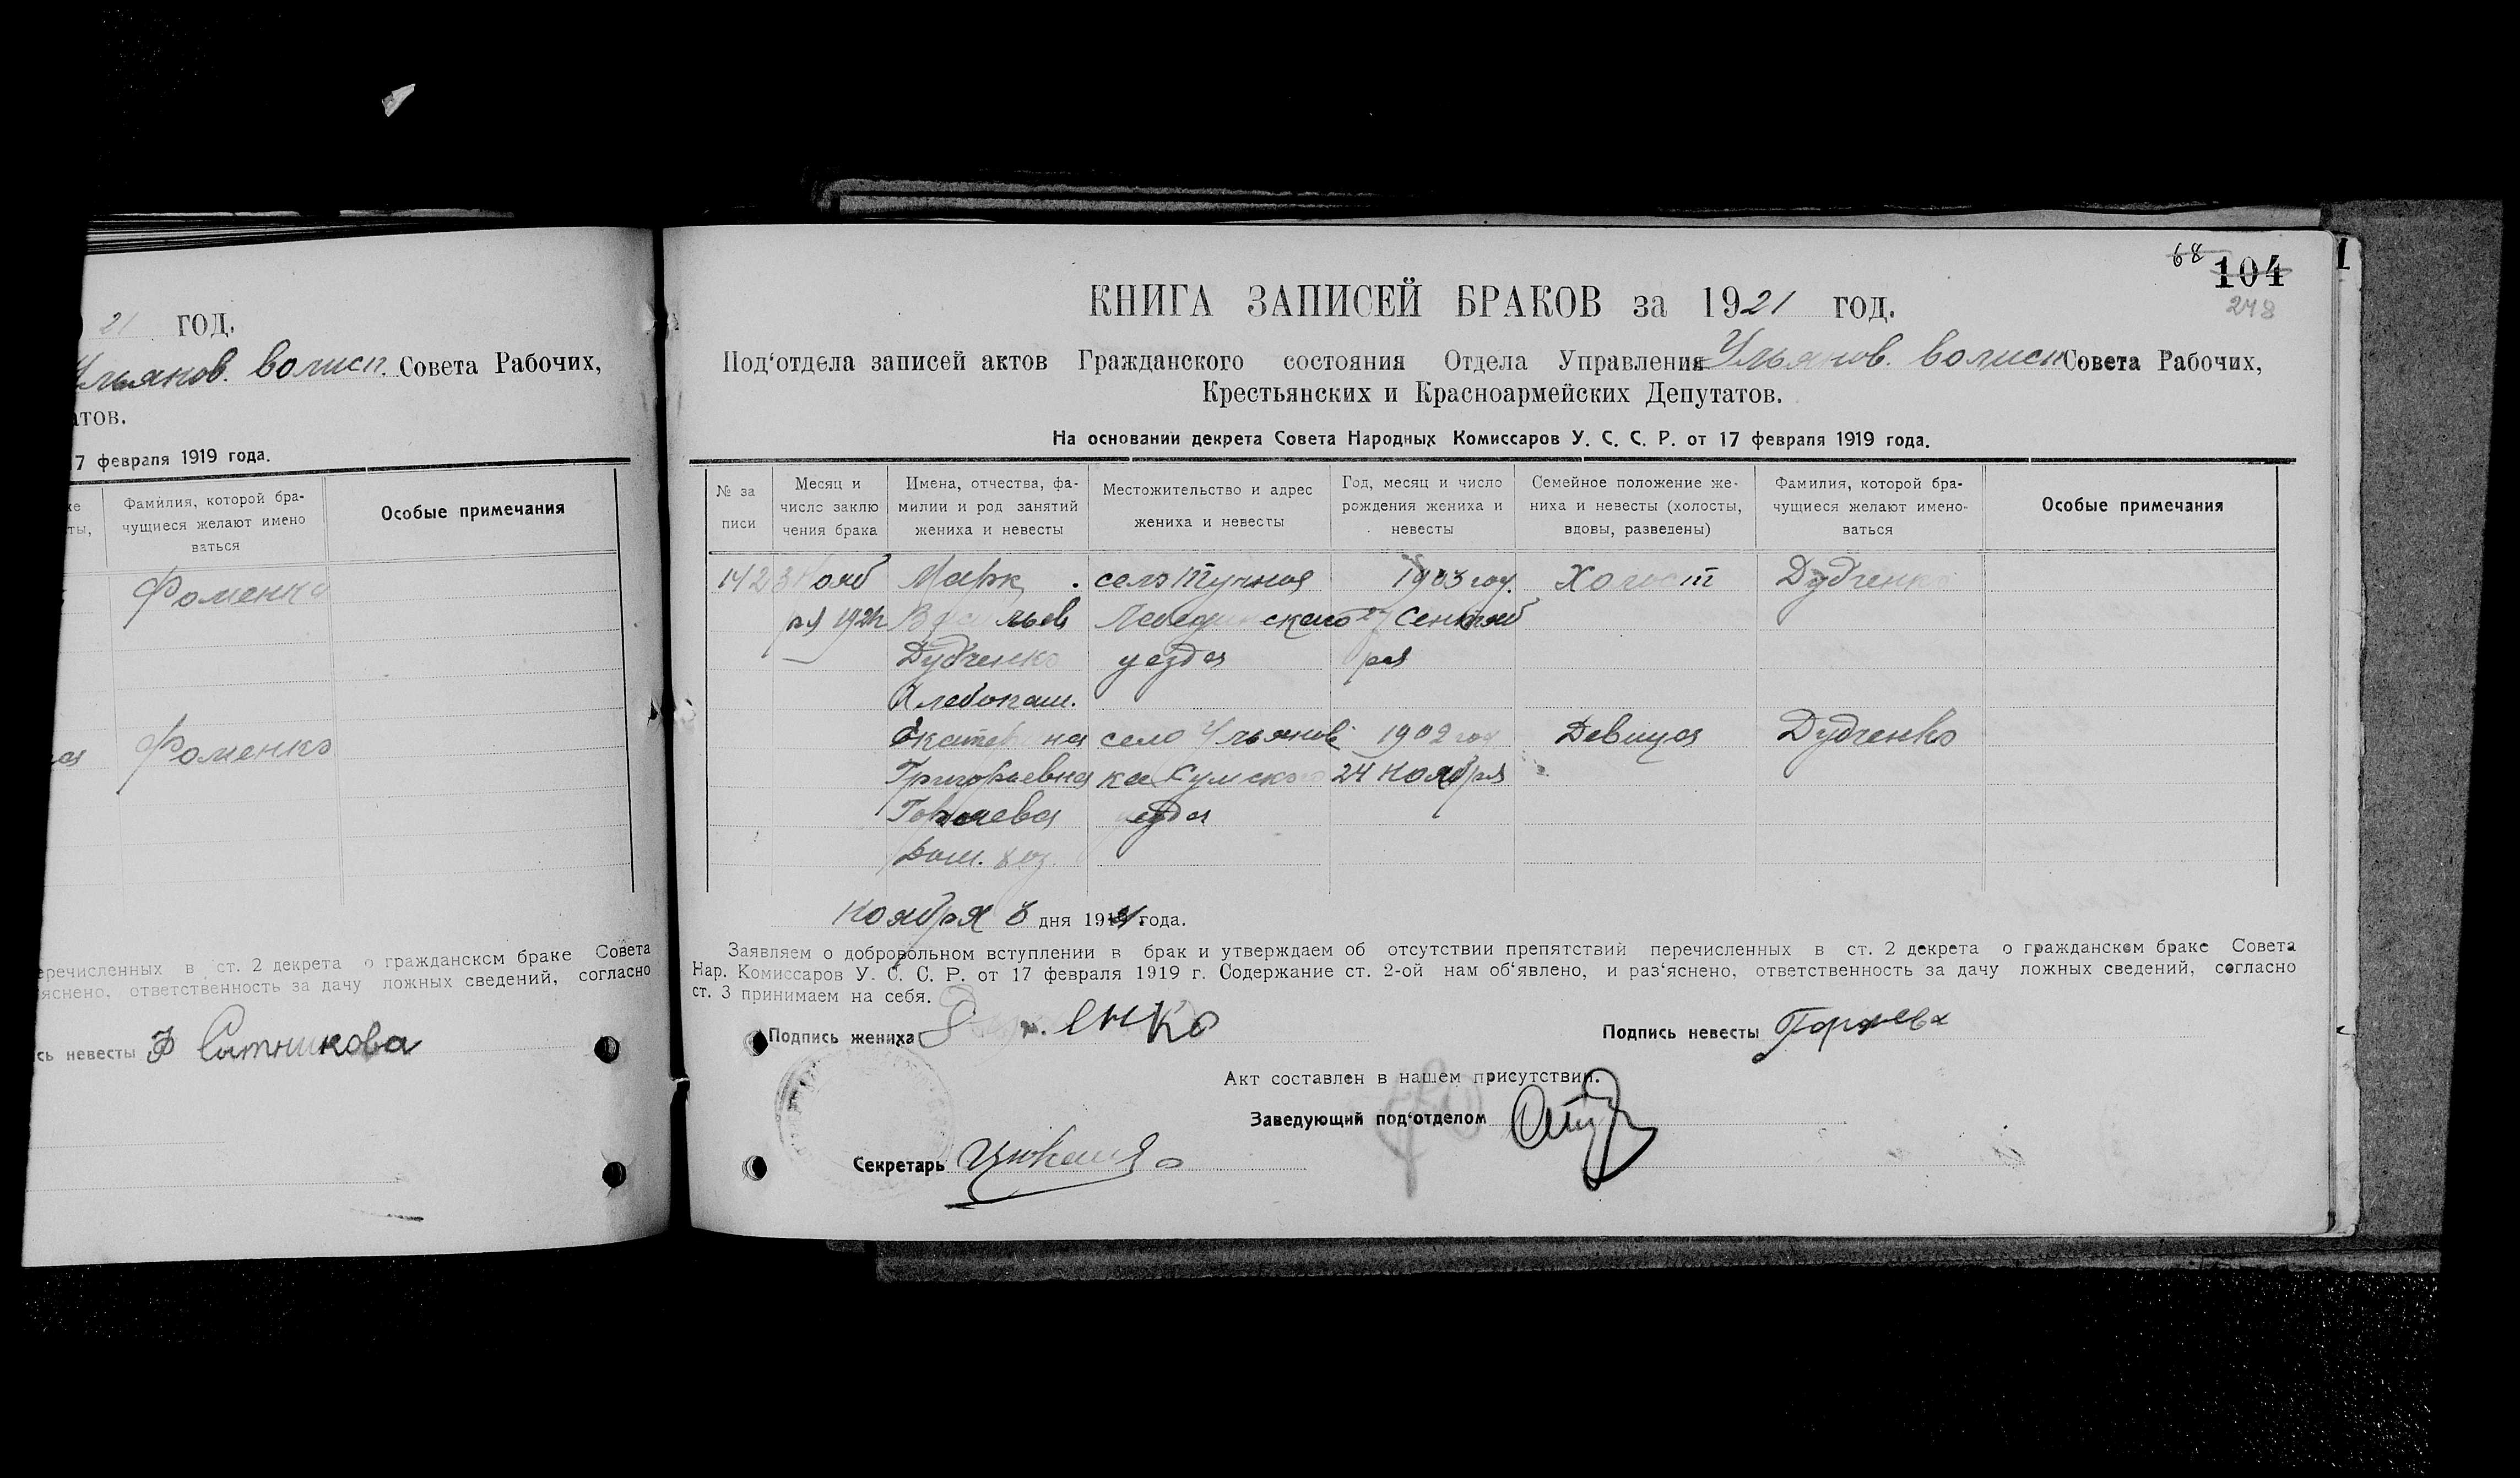 21 ГОД.
Ульянов. волисп. Совета Рабочих,
атов.
7 февраля 1919 года.
Фамилия, которой бра-
чущиеся желают имено
ваться
Особые примечания
Фоменко
Фоменко
еречисленных в ст. 2 декрета о гражданском браке Совета
яснено, ответственность за дачу ложных сведений, согласно
сь невесты Ф Сотникова
68
104
248
КНИГА ЗАПИСЕЙ БРАКОВ за 1921 год.
Под‘отдела записей актов Гражданского состояния Отдела Управления Ульянов. волисп Совета Рабочих,
Крестьянских и Красноармейских Депутатов.
На основании декрета Совета Народных Комиссаров У. С. С. Р. от 17 февраля 1919 года.
№ за
писи
Месяц и
число заклю
чения брака
Имена, отчества, фа-
милии и род занятий
жениха и невесты
Местожительство и адрес
жениха и невесты
Год, месяц и число
рождения жениха и
невесты
Семейное положение же-
ниха и невесты (холосты,
вдовы, разведены)
Фамилия, которой бра-
чущиеся желают имено-
ваться
Особые примечания
142
Нояб
ря 1921
Марк
Васильев
Дудченко
Хлебопаш.
село Тучная
Лебединского
уезда
1903 год.
27 Сентяб
ря
Холост
Дудченко
Екатерина
Григорьевна
Горяева
Дом. хоз.
село Ульянов
ка Сумского
уезда
1902 год
24 Ноября
Девица
Дудченко
Ноября 8 дня 1921 года.
Заявляем о добровольном вступлении в брак и утверждаем об отсутствии препятствий перечисленных в ст. 2 декрета о гражданском браке Совета
Нар. Комиссаров У. С. С. Р. от 17 февраля 1919 г. Содержание ст. 2-ой нам об‘явлено, и раз‘яснено, ответственность за дачу ложных сведений, согласно
ст. 3 принимаем на себя.
Подпись жениха
Подпись невесты Горяева
Акт составлен в нашем присутствии.
Заведующий под‘отделом
Секретарь